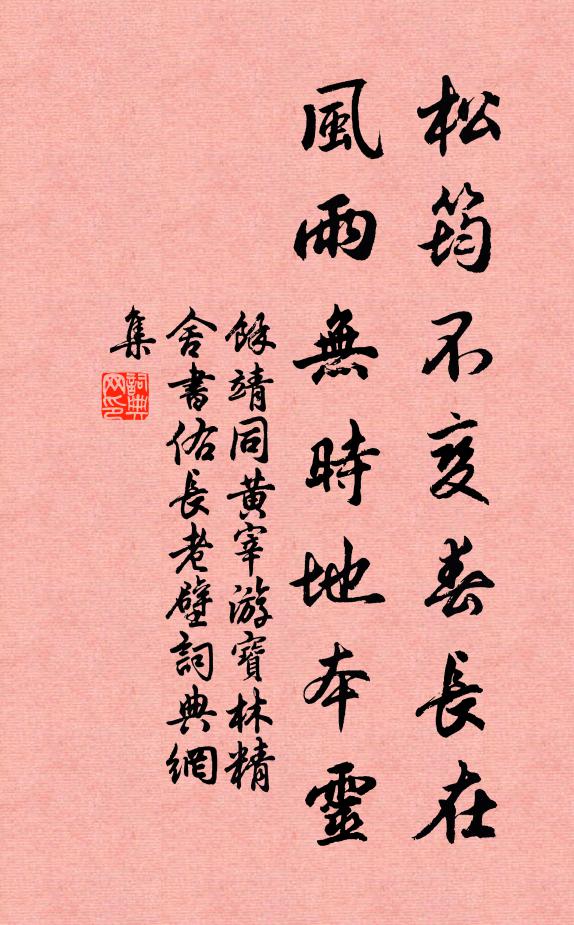 松筠不变春長在
風雨無時地本靈
餘靖同黃宰游寶林精
舍書佑長老壁詞典網
集
詞典
网印